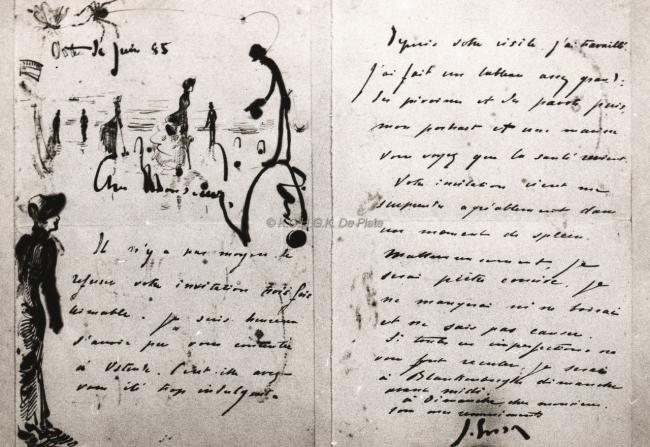 Ost 30 Juin 85
Cher Monsieur,
Il n'y a pas moyen de
refuser votre invitation trois fois
aimable. Je suis heureux
d'avoir pu vous
à Ostende. C'est elle
vous été trop indulgent.
Depuis votre visite j'ai travaillé.
J'ai fait un tableau assez grand:
des pivoines et des pavots puis
mon portrait et une
vous voyez que la santé revient.
Votre invitation vient me
surprendre agréablement dans
un moment de spleen.
Malheureusement, je
serai piètre convive. Je
ne mangerai ni ne boirai
et ne sais pas causer.
Si toutes ces imperfections ne
vous font reculer je serai
à Blankenberghe dimanche
avant midi.
à Dimanche, cher monsieur.
© K.I.K. De Plate